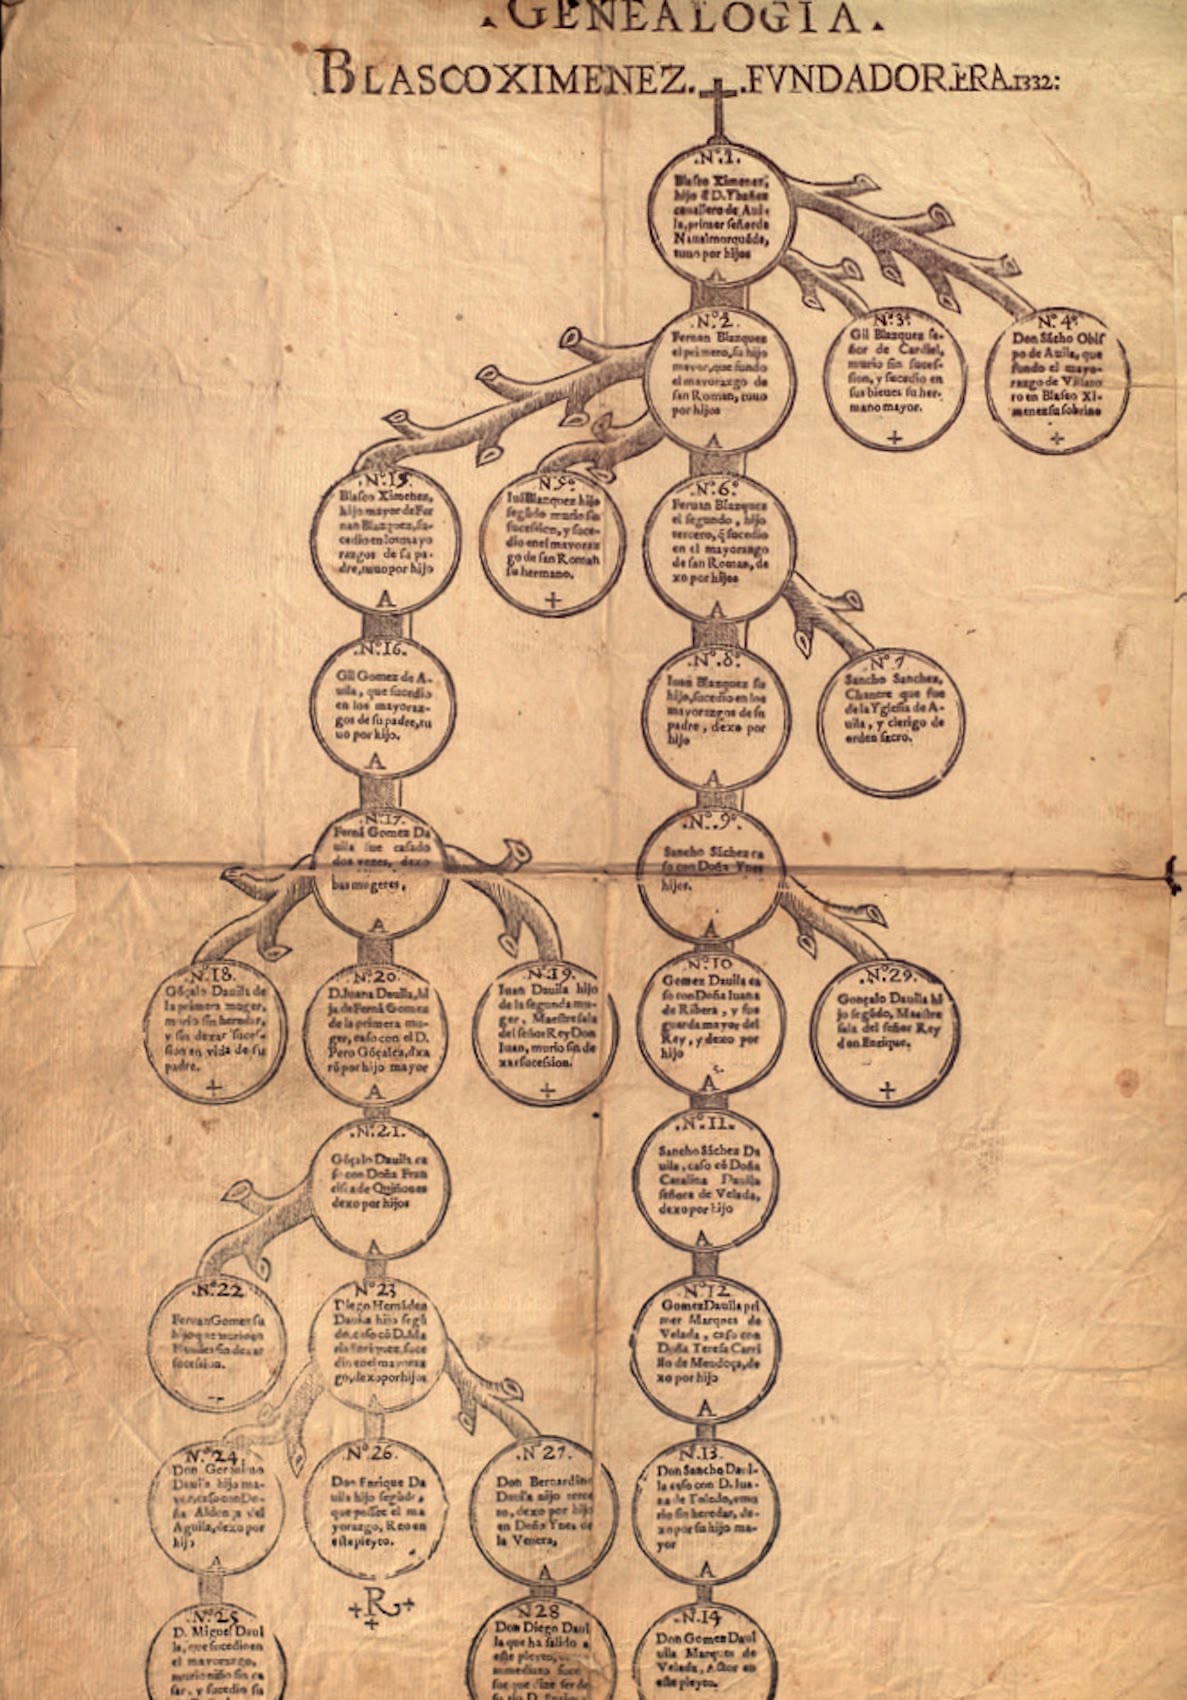 .GENEALOGIA.
BLASCO XIMENEZ. .FVNDADOR.ERA.1332:
.Nº.1.
Blasco Ximenez,
hijo đ D. Ybañez
cauallero de Aui-
la, primer señor de
Naualmorquēde,
tuuo por hijos
A
.Nº.2.
Fernan Blazquez
el primero, su hijo
mayor, que fundo
el mayorazgo de
san Roman, tuuo
por hijos
A
Nº.3º
Gil Blazquez se-
ñor de Cardiel,
murio sin suces-
sion, y sucedio en
sus bienes su her-
mano mayor.
+
Nº.4º
Don Sācho Obis
po de Auila, que
fundo el mayo-
razgo de Villato
ro en Blasco Xi-
menez su sobrino
+
.Nº.15.
Blasco Ximenez,
hijo mayor de Fer
nan Blazquez, su-
cedio en los mayo
razgos de su pa-
dre, tuuo por hijo
A
Nº.5º
Iuā Blazquez hijo
segūdo murio sin
sucession, y suce-
dio en el mayoraz
go de san Roman
su hermano.
+
Nº.6º
Fernan Blazquez
el segundo, hijo
tercero, q̄ sucedio
en el mayorazgo
de san Roman, de
xo por hijos
A
.Nº.16.
Gil Gomez de A-
uila, que sucedio
en los mayoraz-
gos de su padre, tu
uo por hijo.
A
.Nº.8º
Iuan Blazquez su
hijo, sucedio en los
mayorazgos de su
padre, dexo por
hijo
A
Nº 7
Sancho Sanchez,
Chantre que fue
de la Yglesia de A-
uila, y clerigo de
orden sacro.
.Nº.17.
Fernā Gomez Da
uila fue casado
dos vezes, dexo
bas mugeres,
A
.Nº.9º
Sancho Sāchez ca
so con Doña Ynes
hijos.
A
.Nº.18.
Gōçalo Dauila de
la primera muger,
murio sin heredar,
y sin dexar suces-
sion en vida de su
padre.
+
Nº20.
D. Iuana Dauila, hi
ja de Fernā Gomez
de la primera mu-
ger, caso con el D.
Pero Gōçalez, dxa
rō por hijo mayor
A
.Nº.19.
Iuan Dauila hijo
de la segunda mu-
ger, Maestresala
del señor Rey Don
Iuan, murio sin de
xar sucession.
+
.Nº10
Gomez Dauila ca
so con Doña Iuana
de Ribera, y fue
guarda mayor del
Rey, y dexo por
hijo
A
.Nº.29.
Gonçalo Dauila hi
jo segūdo, Maestre
sala del señor Rey
don Enrique.
+
.Nº21.
Gōçalo Dauila ca
so con Doña Fran
cisca de Quiñones
dexo por hijos
A
.Nº.11.
Sancho Sāchez Da
uila, caso cō Doña
Catalina Dauila
señora de Velada,
dexo por hijo
A
.Nº22
Fernan Gomez su
hijo que murio en
Flandes sin dexar
sucession.
Nº23
Diego Hernādez
Dauila hijo segū
do, caso cō D. Ma
ria Enriquez, suce
dio en el mayoraz
go, dexo por hijos
A
Nº12
Gomez Dauila pri
mer Marques de
Velada, caso con
Doña Teresa Carri
llo de Mendoça, de
xo por hijo
A
Nº24
Don Geronimo
Dauila hijo ma-
yor, caso con Do-
ña Aldonça del
Aguila, dexo por
hijo
A
Nº26.
Don Enrique Da
uila hijo segūdo,
que possee el ma
yorazgo, Reo en
este pleyto.
+R+
+
.Nº27.
Don Bernardino
Dauila hijo terce
ro, dexo por hijo
en Doña Ynes de
la Venera,
A
N.13.
Don Sancho Daui-
la caso con D. Iua-
na de Toledo, mu
rio sin heredar, de-
xo por su hijo ma-
yor
A
.Nº25
D. Miguel Daui
la, que sucedio en
el mayorazgo,
murio niño sin ca
sar, y sucedio su
N28
Don Diego Daui
la que ha salido a
este pleyto,
inmediato suce
sor que dize ser de
su tio D. Enriq
.N.14
Don Gomez Daui
uila Marques de
Velada, Actor en
este pleyto.